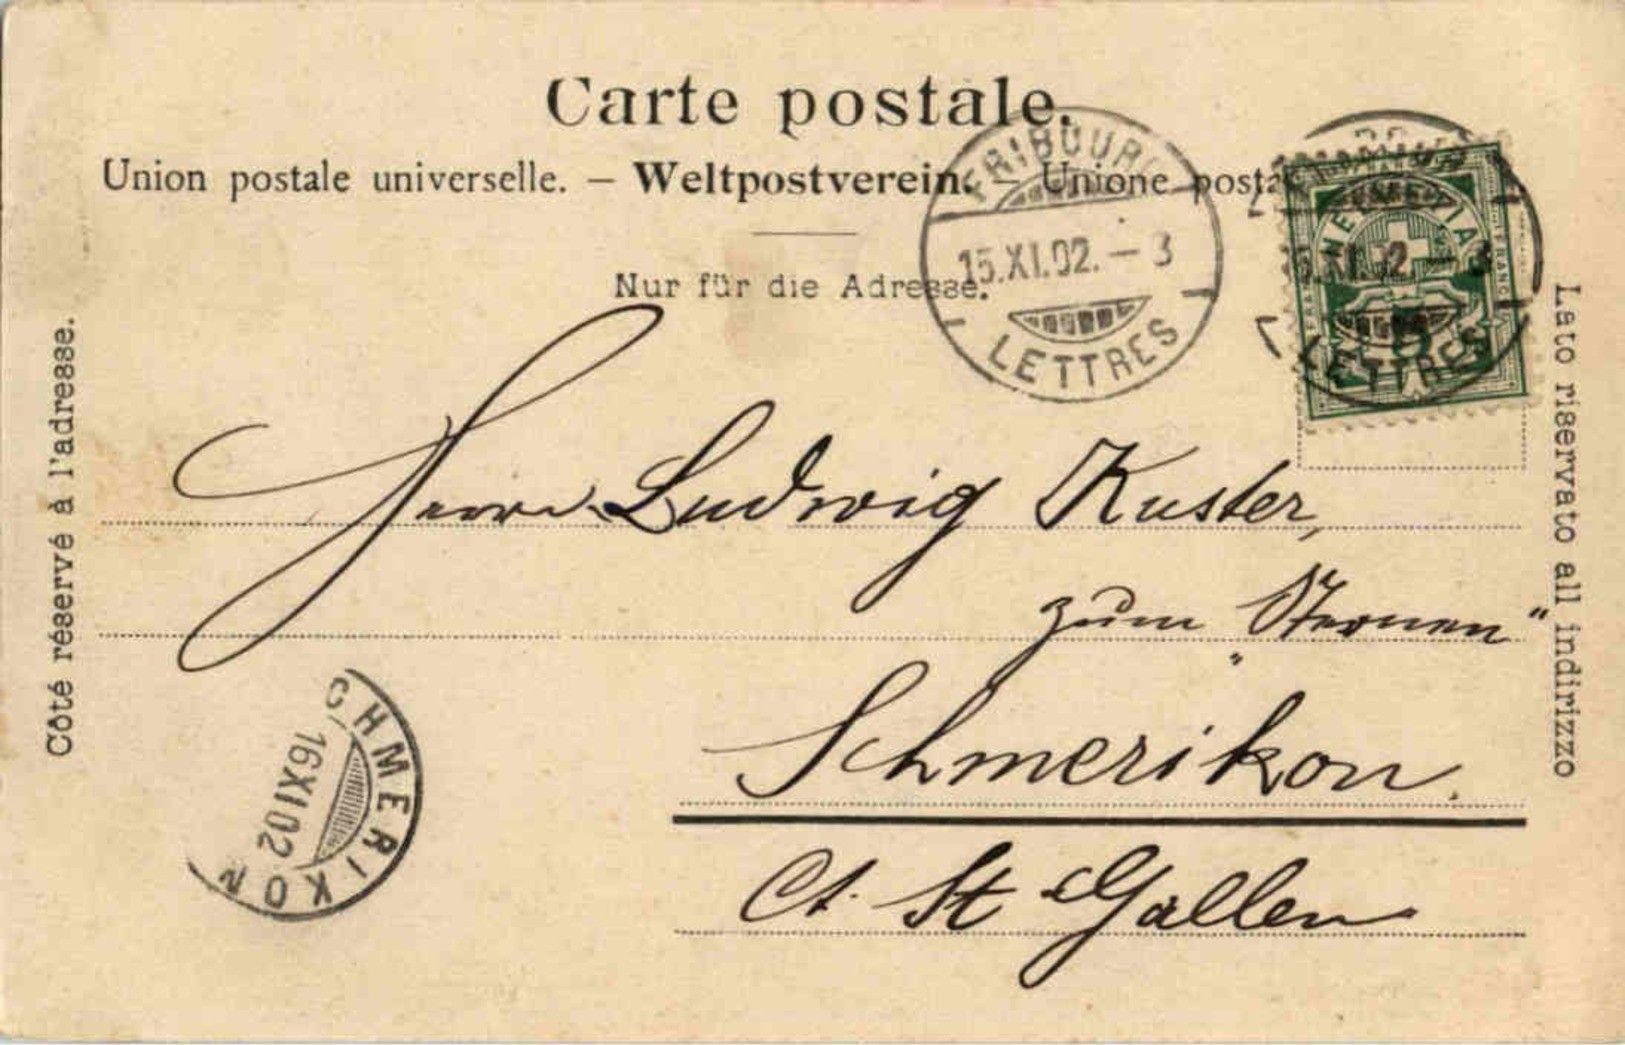 Carte postale.
Union postale universelle. – Weltpostverein. – Unione posta
Nur für die Adresse.
FRIBOURG
15.XI.02.–3
LETTRES
HELVETIA
5
XI.02.–3
LETTRES
Côté réservé à l'adresse.
Lato riservato all indirizzo
Herrn Ludwig Kuster,
zum „Sternen“
Schmerikon.
Ct. St Gallen
CHMERIKON
16XI02